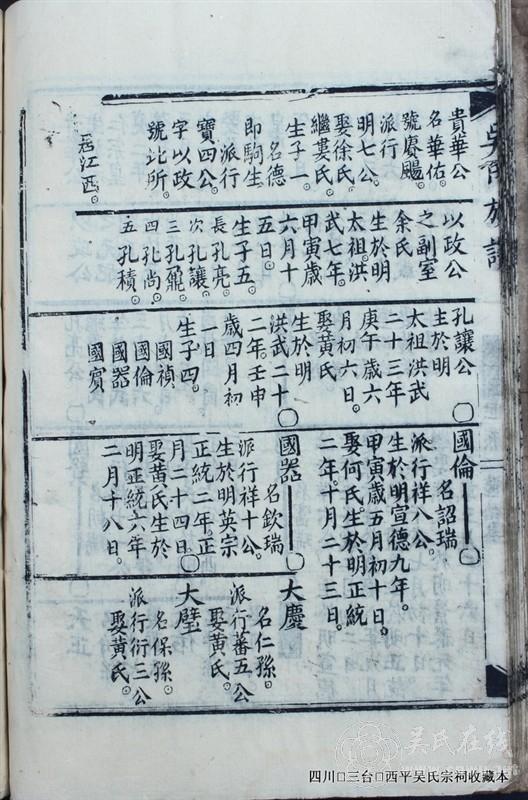 貴華公
名華佑。
號賡颺。
派行
明七公。
娶徐氏。
繼婁氏。
生子一。
名德
即駒生
派行
寶四公。
字以政
號北所。
江西。
以政公
之副室
余氏
生於明
太祖洪
武七年。
甲寅歲
六月十
五日。
生子五。
長孔亮
次孔讓。
三孔
四孔尚。
五孔積。
孔讓公
生於明
太祖洪武
二十三年
庚午歲六
月初六日。
娶黃氏。
生於明
洪武二十
二年。壬申
歲四月初
一日
生子四。
國禎
國倫
國器
國賓
國倫
名詔瑞
派行祥八公。
生於明宣德九年。
甲寅歲五月初十日。
娶何氏。生於明正統
二年。十月二十三日。
國器
名欽瑞
派行祥十公。
生於明英宗
正統二年。正
月二十四日
娶黃氏生於
明正統六年
二月十八日。
大慶
名仁孫。
派行蕃五公
娶黃氏。
大璧
名保孫。
派行衍三公
娶黃氏。
吳氏在线
四川□三台□西平吴氏宗祠收藏本